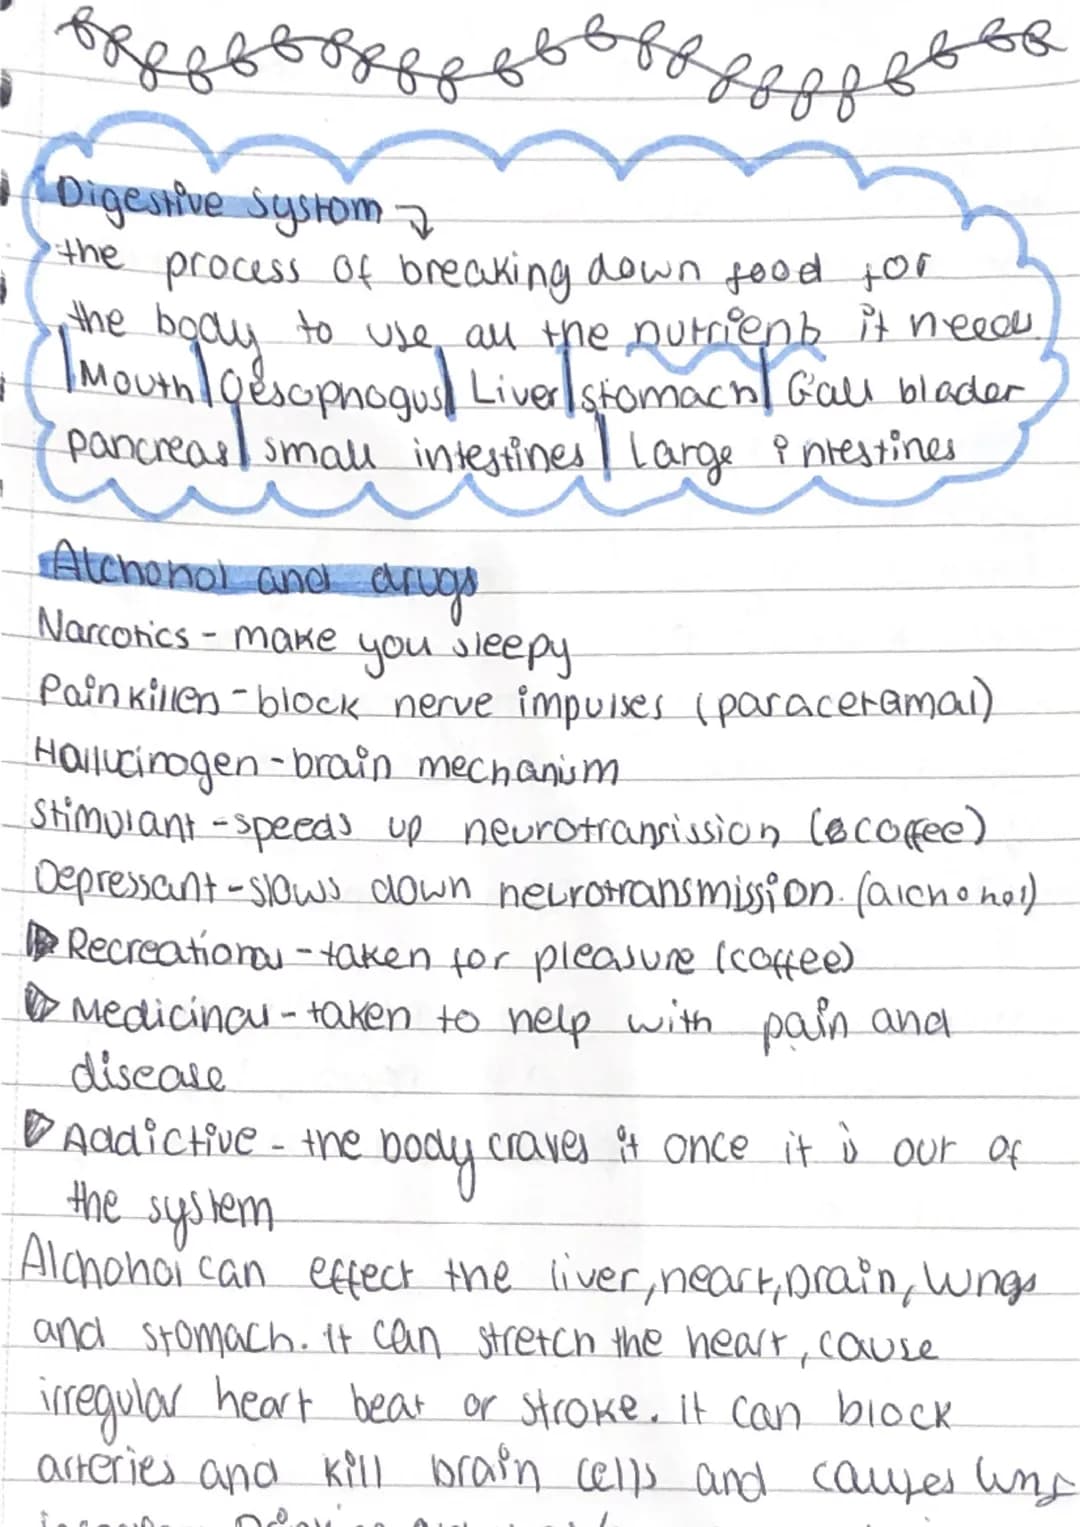 Digestive system
the process of breaking down food for
the body to use all the nutrients it needs.
Mouth | Oesophogus | Liver | stomach | Gall blader
pancreas | small intestines | Large intestines
Alchohol and drugs
Narcotics - make you sleepy
Painkillers - block nerve impulses (paracetamal)
Hallucinogen - brain mechanism
Stimulant - speeds up neurotransission (coffee)
Depressant - slows down neurotransmission. (alchohol)
Recreational - taken for pleasure (coffee)
Medicinal - taken to help with pain and
disease
Addictive - the body craves it once it is out of
the system
Alchohol can effect the liver, heart, brain, lungs
and stomach. it can stretch the heart, cause
irregular heart beat or stroke. it can block
arteries and kill brain cells and causes lung